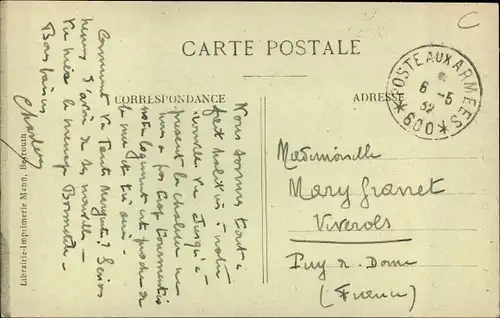 C
CARTE POSTALE
CORRESPONDANCE
ADRESSE
POSTE AUX ARMÉES
6 -5
32
*600*
Nous sommes tout à
fait habitués à notre
nouvelle vie. Jusqu'à
présent la chaleur ne
nous a pas trop tourmentés
notre logement est proche de
la mer et très aéré.
Comment va Tante Marguerite? Serons
heureux d'avoir de ses nouvelles
Bons baisers
Charles
Mademoiselle
Mary Granet
Viverols
Puy de Dome
(France)
Librairie-Imprimerie Mann, Beyrouth